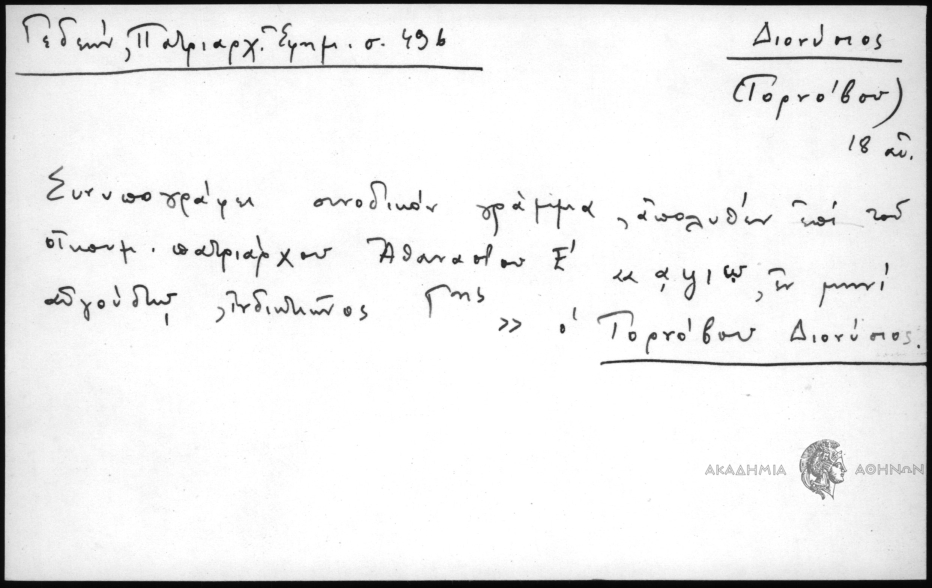 Γεδεών, Πατριαρχ. Ἐφημ. σ. 496
Διονύσιος
(Τορνόβου)
18 αἰ.
Συνυπογράφει συνοδικόν γράμμα, ἀπολυθέν ἐπί τοῦ
οἰκουμ. πατριάρχου Ἀθανασίου Ε´ "αψιῳ, ἐν μηνί
αὐγούστῳ, ἰνδικτιῶνος
>> ὁ Τορνόβου Διονύσιος.
ΑΚΑΔΗΜΙΑ ΑΘΗΝΩΝ